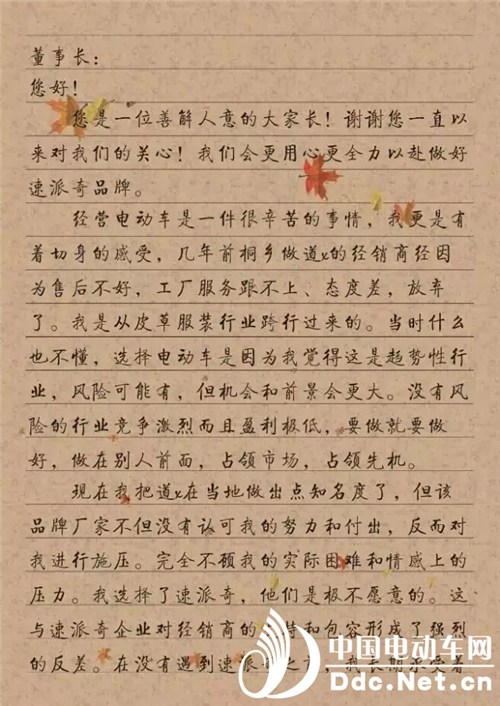 董事长：
您好！
您是一位善解人意的大家长！谢谢您一直以
来对我们的关心！我们会更用心更全力以赴做好
速派奇品牌。
经营电动车是一件很辛苦的事情，我更是有
着切身的感受，几年前桐乡做道x的经销商经因
为售后不好，工厂服务跟不上、态度差，放弃
了。我是从皮草服装行业跨行过来的。当时什么
也不懂，选择电动车是因为我觉得这是趋势性行
业，风险可能有，但机会和前景会更大。没有风
险的行业竞争激烈而且盈利极低，要做就要做
好，做在别人前面，占领市场，占领先机。
现在我把道x在当地做出点知名度了，但该
品牌厂家不但没有认可我的努力和付出，反而对
我进行施压。完全不顾我的实际困难和情感上的
压力。我选择了速派奇，他们是极不愿意的。这
与速派奇企业对经销商的 持和包容形成了强烈
的反差。在没有遇到速派 之 ，我长期承受着
中国电动车网
Ddc.Net.cn